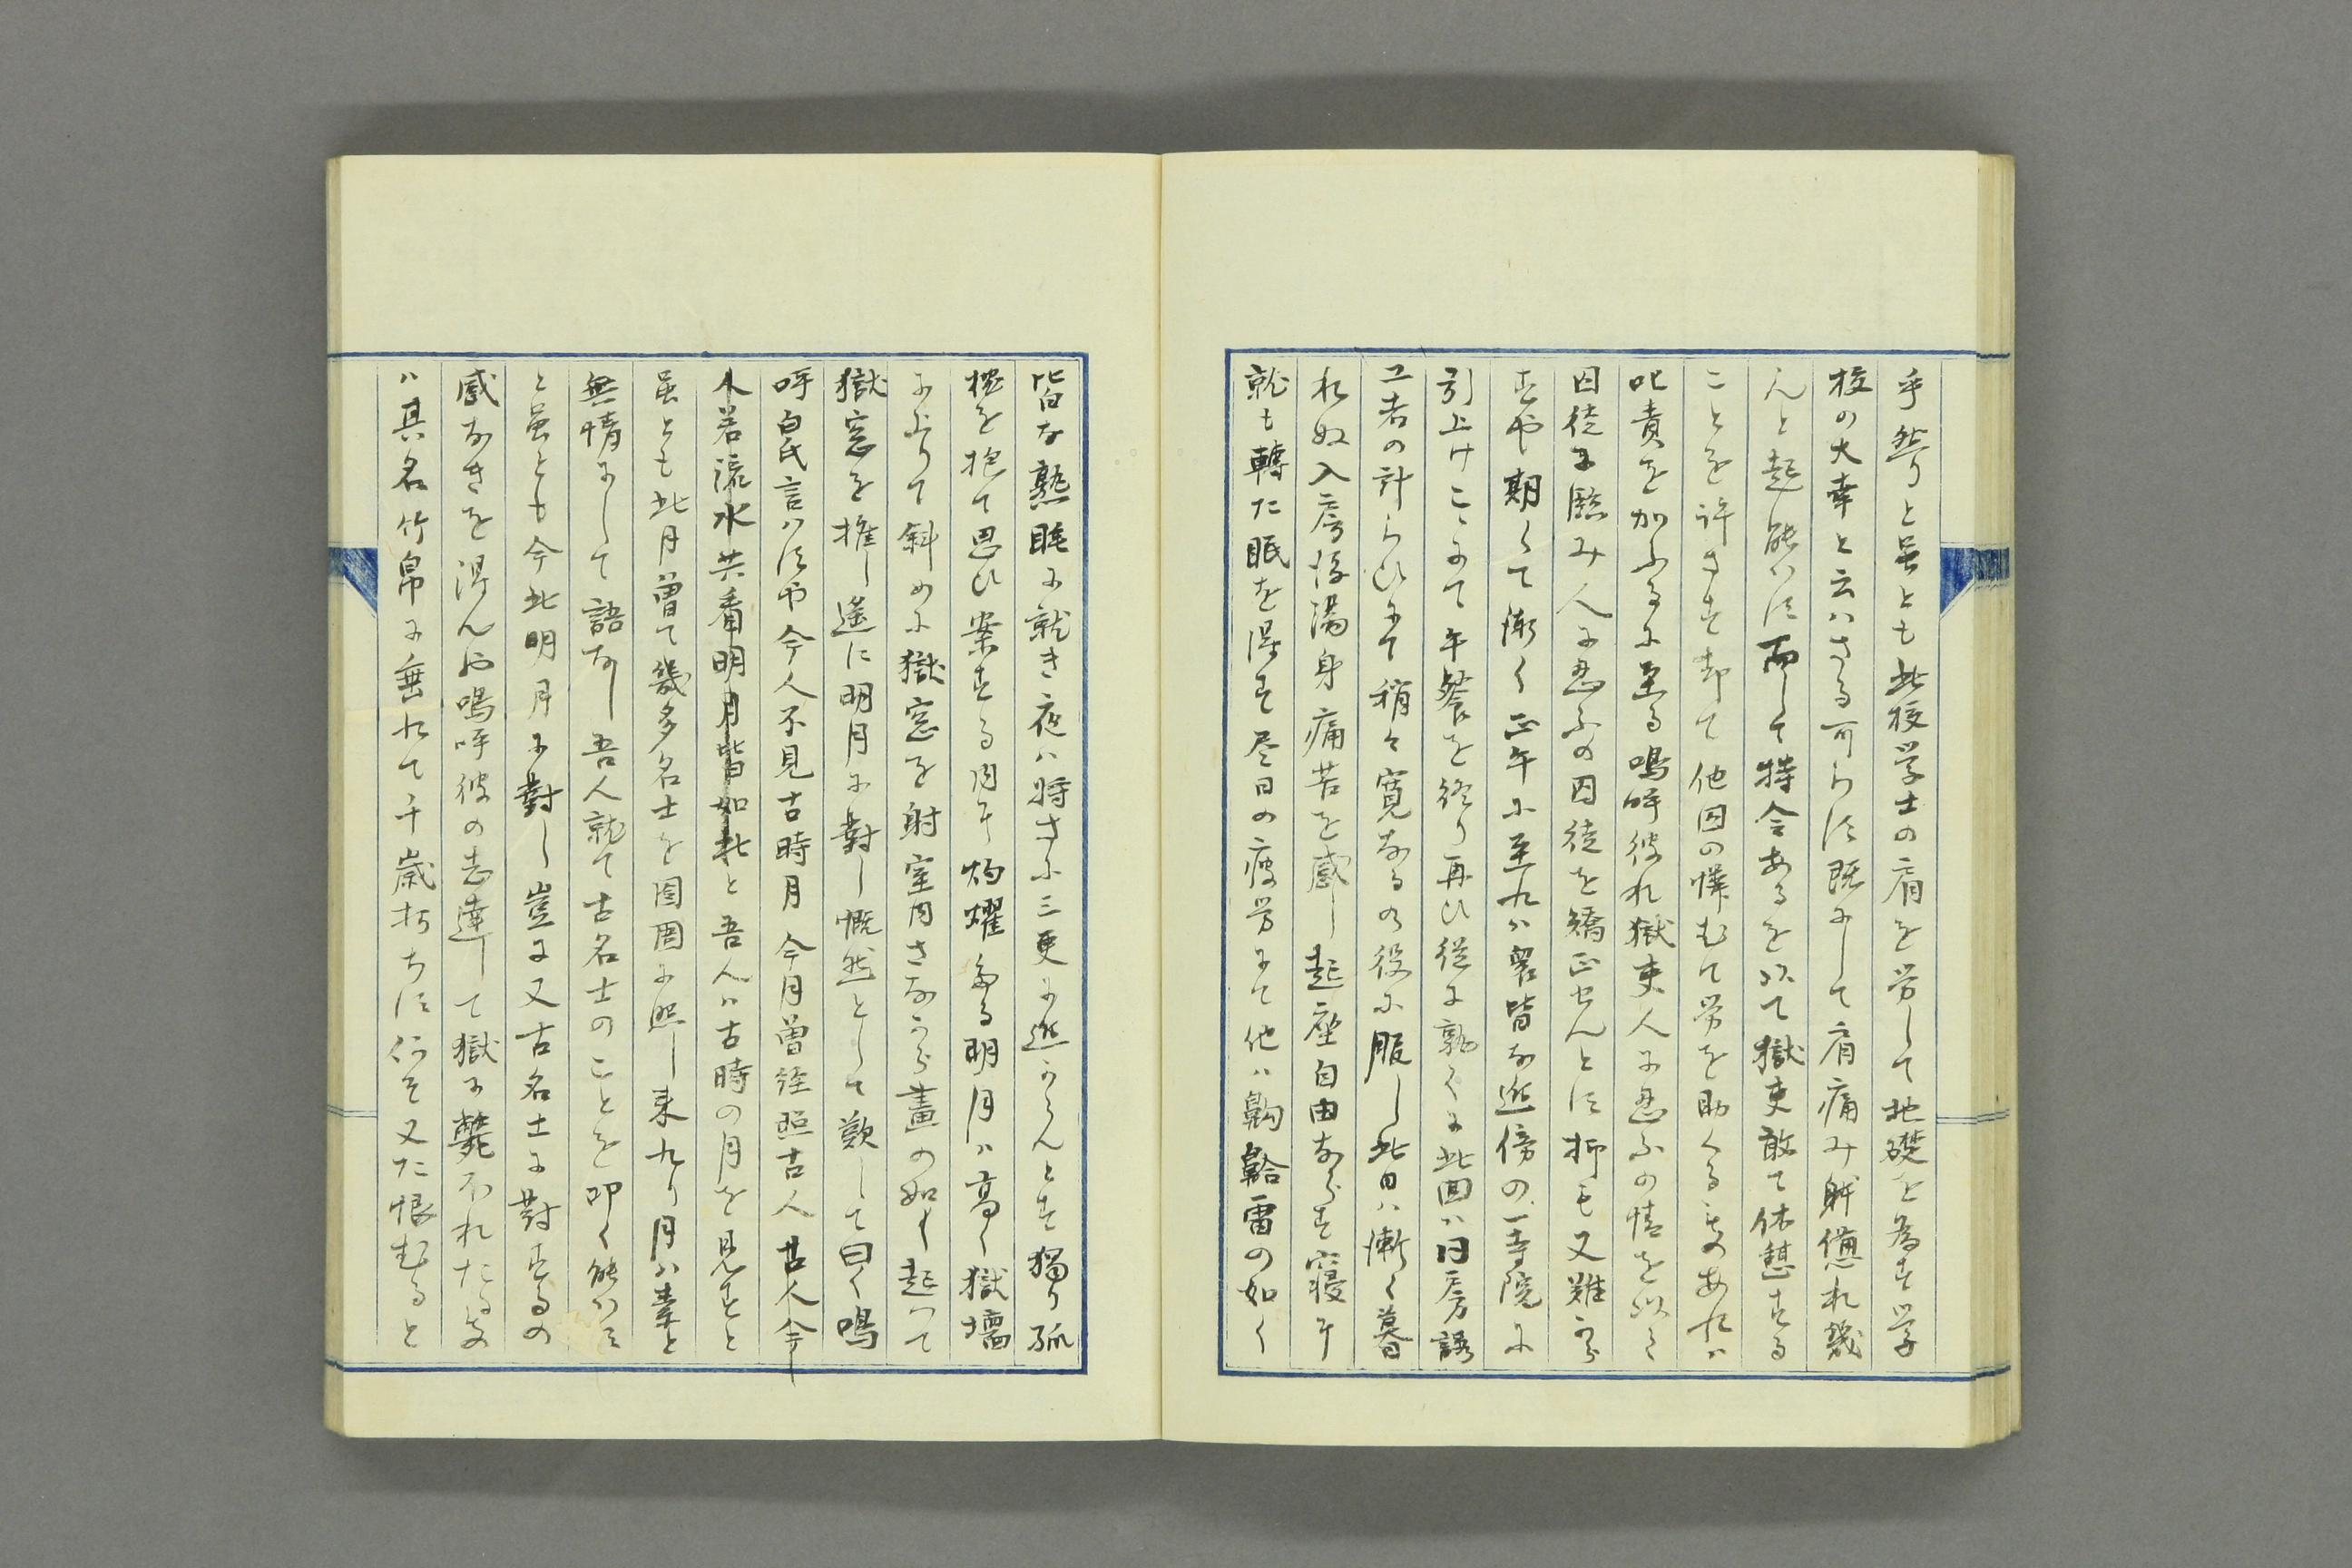 乎然りと虽とも此校学士の肩を労して地礎と為す学
校の大幸と云ハさる可らす既にして肩痛み躰憊れ幾
んと起能ハす而して特令あるを以て獄吏敢て休憩する
ことを許さす却て他囚の憐むて労を助くるものあれハ
叱責を加ふるに至る嗚呼彼れ獄吏人に忍ふの情を以て
囚徒に臨み人に忍ふの囚徒を矯正せんとす抑も又難から
すや期くて漸く正午に至れハ衆皆な近傍の一寺院に
引上けこゝにて午餐を終り再ひ従に就くに此回ハ同房諸
工者の計らひにて稍々寛なるの役に服し此日ハ漸く暮
れぬ入房後満身痛苦を感し起座自由ならす寝に
就も轉た眠を得す尽日の疲労にて他ハ鼾齁雷の如く
皆な熟眠に就き夜ハ将さに三更に近からんとす獨り孤
枕を抱て思ひ案する内に灼耀たる明月ハ高く獄墻
に上りて斜めに獄窓を射室内さなから晝の如し起って
獄窓を推し遙に明月に對し慨然として歎して曰く嗚
呼白氏言ハすや今人不見古時月今月曽経照古人古人今
人若流水共看明月皆如此と吾人ハ古時の月を見すと
虽とも此月曽て幾多名士を囹圄に照し来れり月ハ素と
無情にして語なし吾人就て古名士のことを叩く能ハす
と虽とも今此明月に對し豈に又古名士に對するの
感なきを得んや嗚呼彼の志達して獄に斃れたる支
ハ其名竹帛に垂れて千歳朽ちす何そ又た恨むると